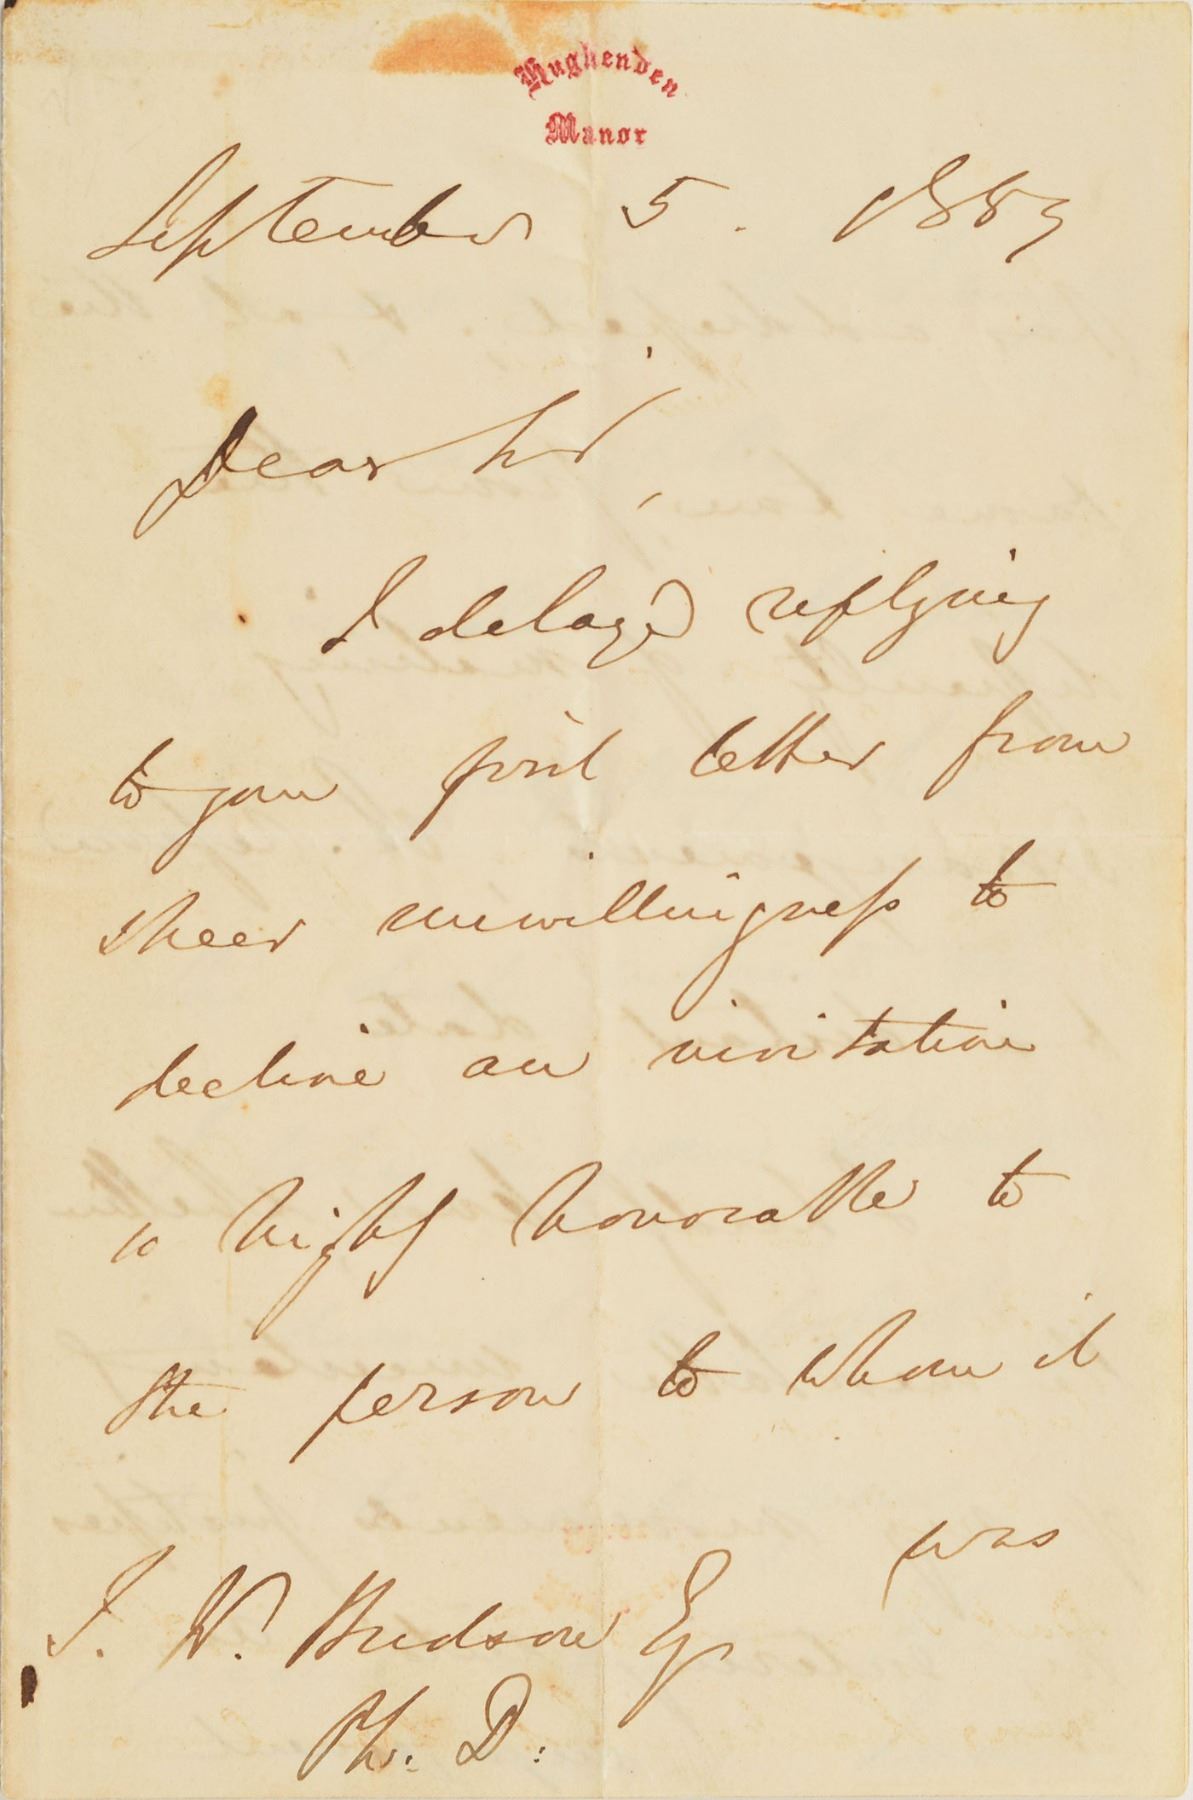 Hughenden
Manor
September 5. 1853
Dear Sir,
I delay'd replying
to your first letter from
sheer unwillingness to
decline an invitation
so highly honorable to
the person to whom it
was
J. W. Hudson Esqr
Ph. D: